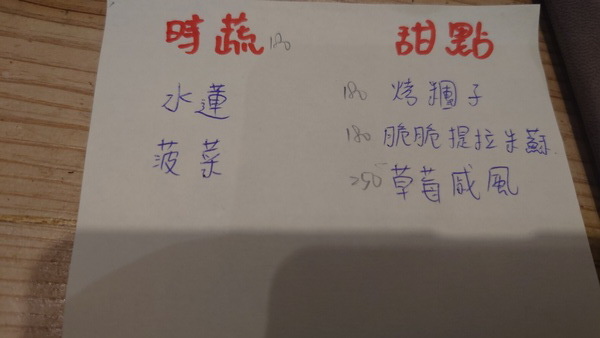 時蔬 180
水蓮
菠菜
甜點
180 烤糰子
180 脆脆提拉米蘇
250 草莓戚風